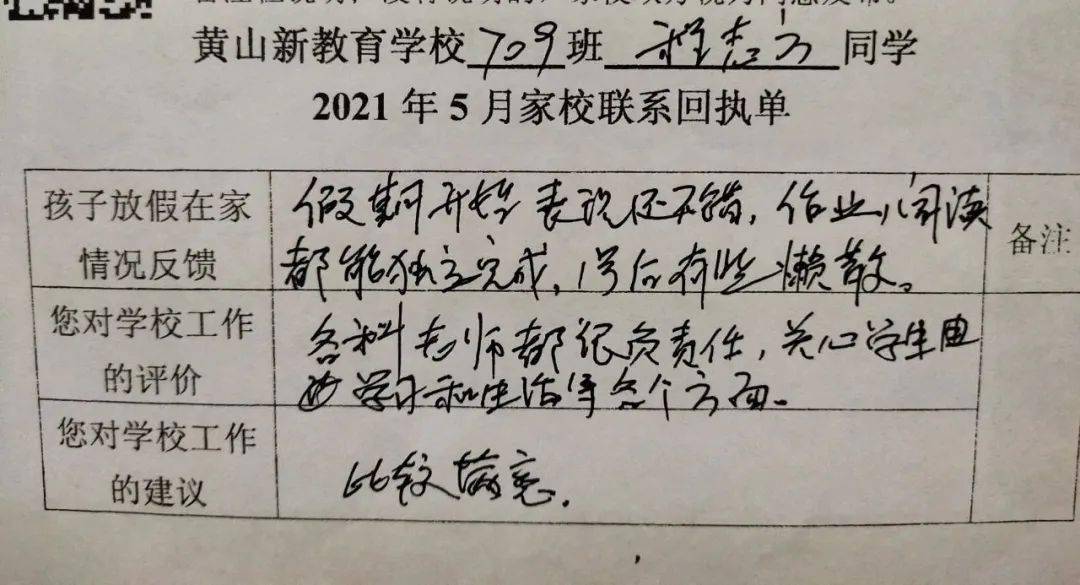 黄山新教育学校709班程志方同学
2021年5月家校联系回执单
孩子放假在家
情况反馈
假期开始表现还不错，作业，阅读
都能独立完成，1号后有些懒散。
备注
您对学校工作
的评价
各科老师都很负责任，关心学生
学习和生活等各个方面。
您对学校工作
的建议
比较满意.